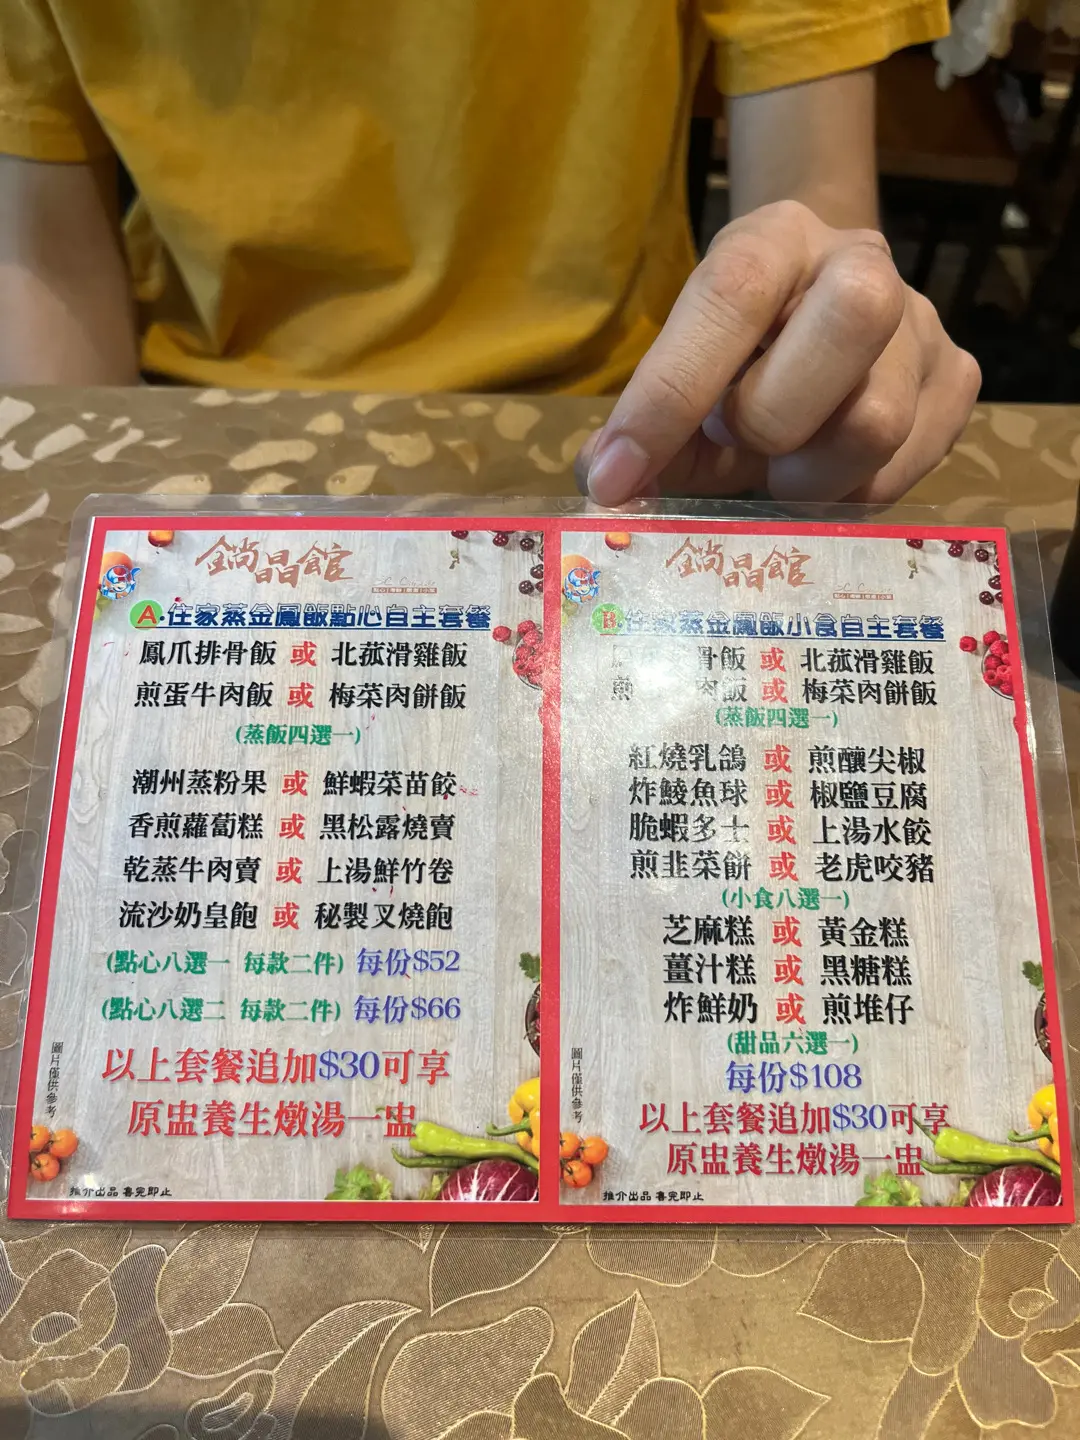 鐄晶館
A.住家蒸金鳳飯點心自主套餐
鳳爪排骨飯 或 北菰滑雞飯
煎蛋牛肉飯 或 梅菜肉餅飯
(蒸飯四選一)
潮州蒸粉果 或 鮮蝦菜苗餃
香煎蘿蔔糕 或 黑松露燒賣
乾蒸牛肉賣 或 上湯鮮竹卷
流沙奶皇飽 或 秘製叉燒飽
(點心八選一 每款二件) 每份$52
(點心八選二 每款二件) 每份$66
以上套餐追加$30可享
原盅養生燉湯一盅
圖片僅供參考
推介出品 售完即止
晶館
B.住家蒸金鳳飯小食自主套餐
骨飯 或 北菰滑雞飯
煎 肉飯 或 梅菜肉餅飯
(蒸飯四選一)
紅燒乳鴿 或 煎釀尖椒
炸鯪魚球 或 椒鹽豆腐
脆蝦多士 或 上湯水餃
煎韭菜餅 或 老虎咬豬
(小食八選一)
芝麻糕 或 黃金糕
薑汁糕 或 黑糖糕
炸鮮奶 或 煎堆仔
(甜品六選一)
每份$108
以上套餐追加$30可享
原盅養生燉湯一盅
圖片僅供參考
推介出品 售完即止